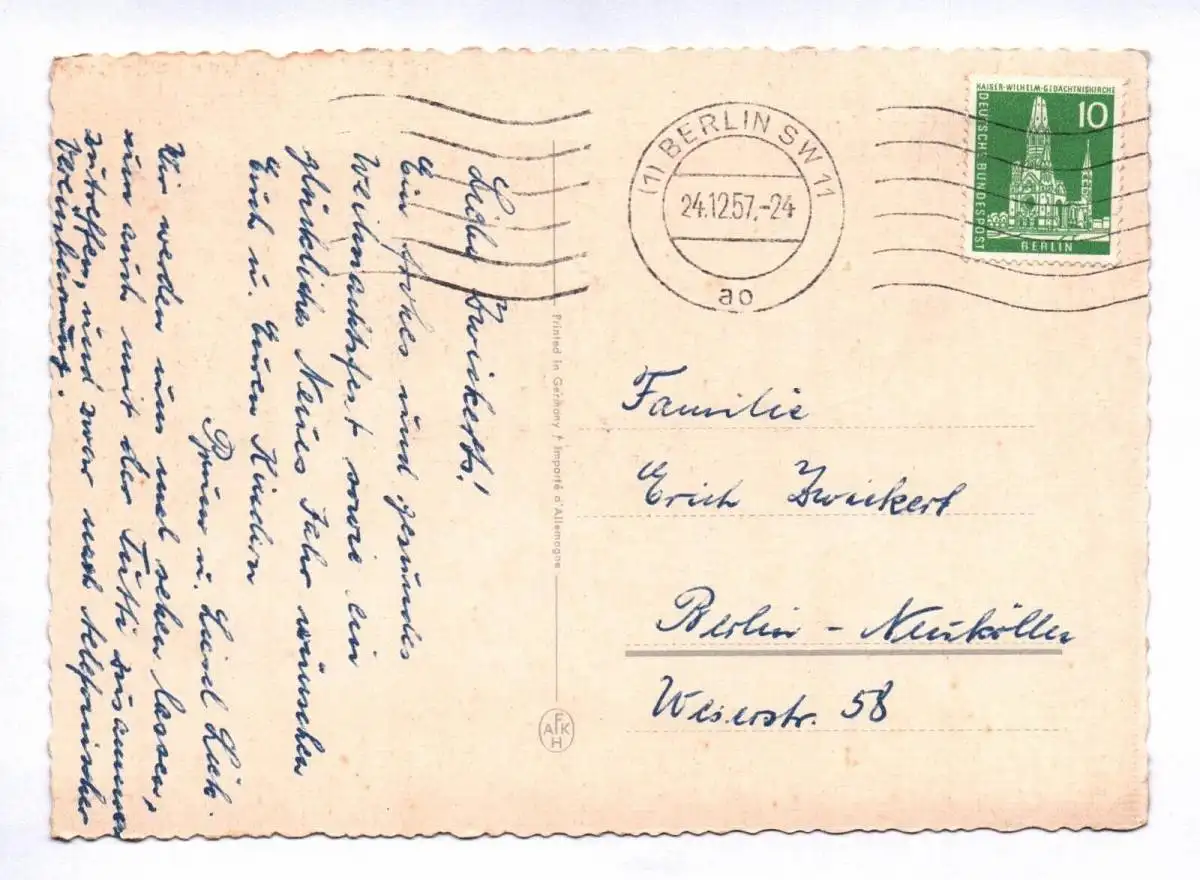 Liebe Zwickerts!
Ein frohes und gesundes
Weihnachtsfest sowie ein
glückliches Neues Jahr wünschen
Euch u. Euren Kindern
u. Luck.
Wir werden uns mal sehen lassen,
nun auch mit der Tutti zusammen
zutreffen, und zwar nach telefonischer
Vereinbarung.
Printed in Germany / Importé d'Allemagne
AFKH
(1) BERLIN SW 11
24.12.57.-24
ao
KAISER-WILHELM-GEDÄCHTNISKIRCHE
10
DEUTSCHE BUNDESPOST
BERLIN
Familie
Erich Zwickert
Berlin - Neukölln
Weserstr. 58